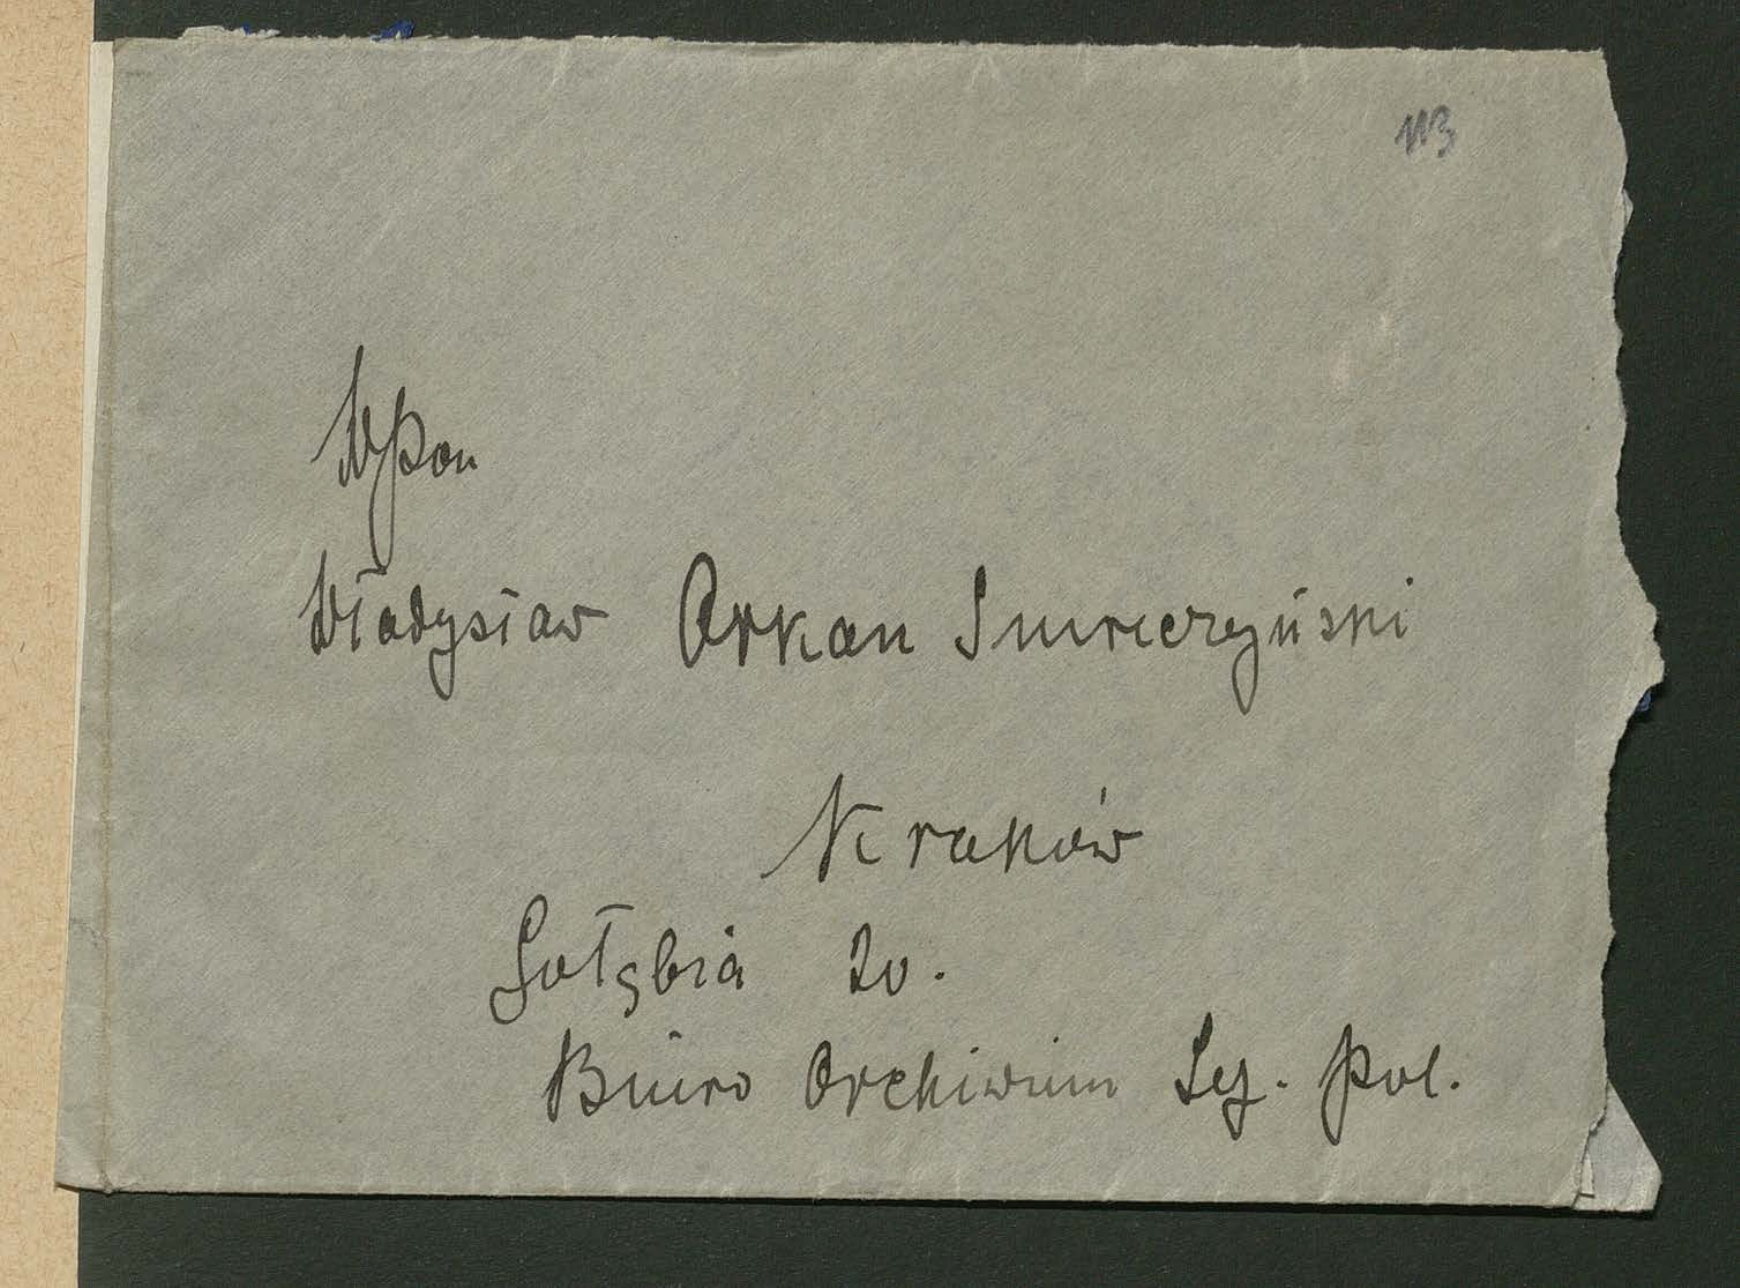 113
WPan
Władysław Orkan Smreczyński
Kraków
Gołębia 20.
Biuro Archiwum Leg. Pol.